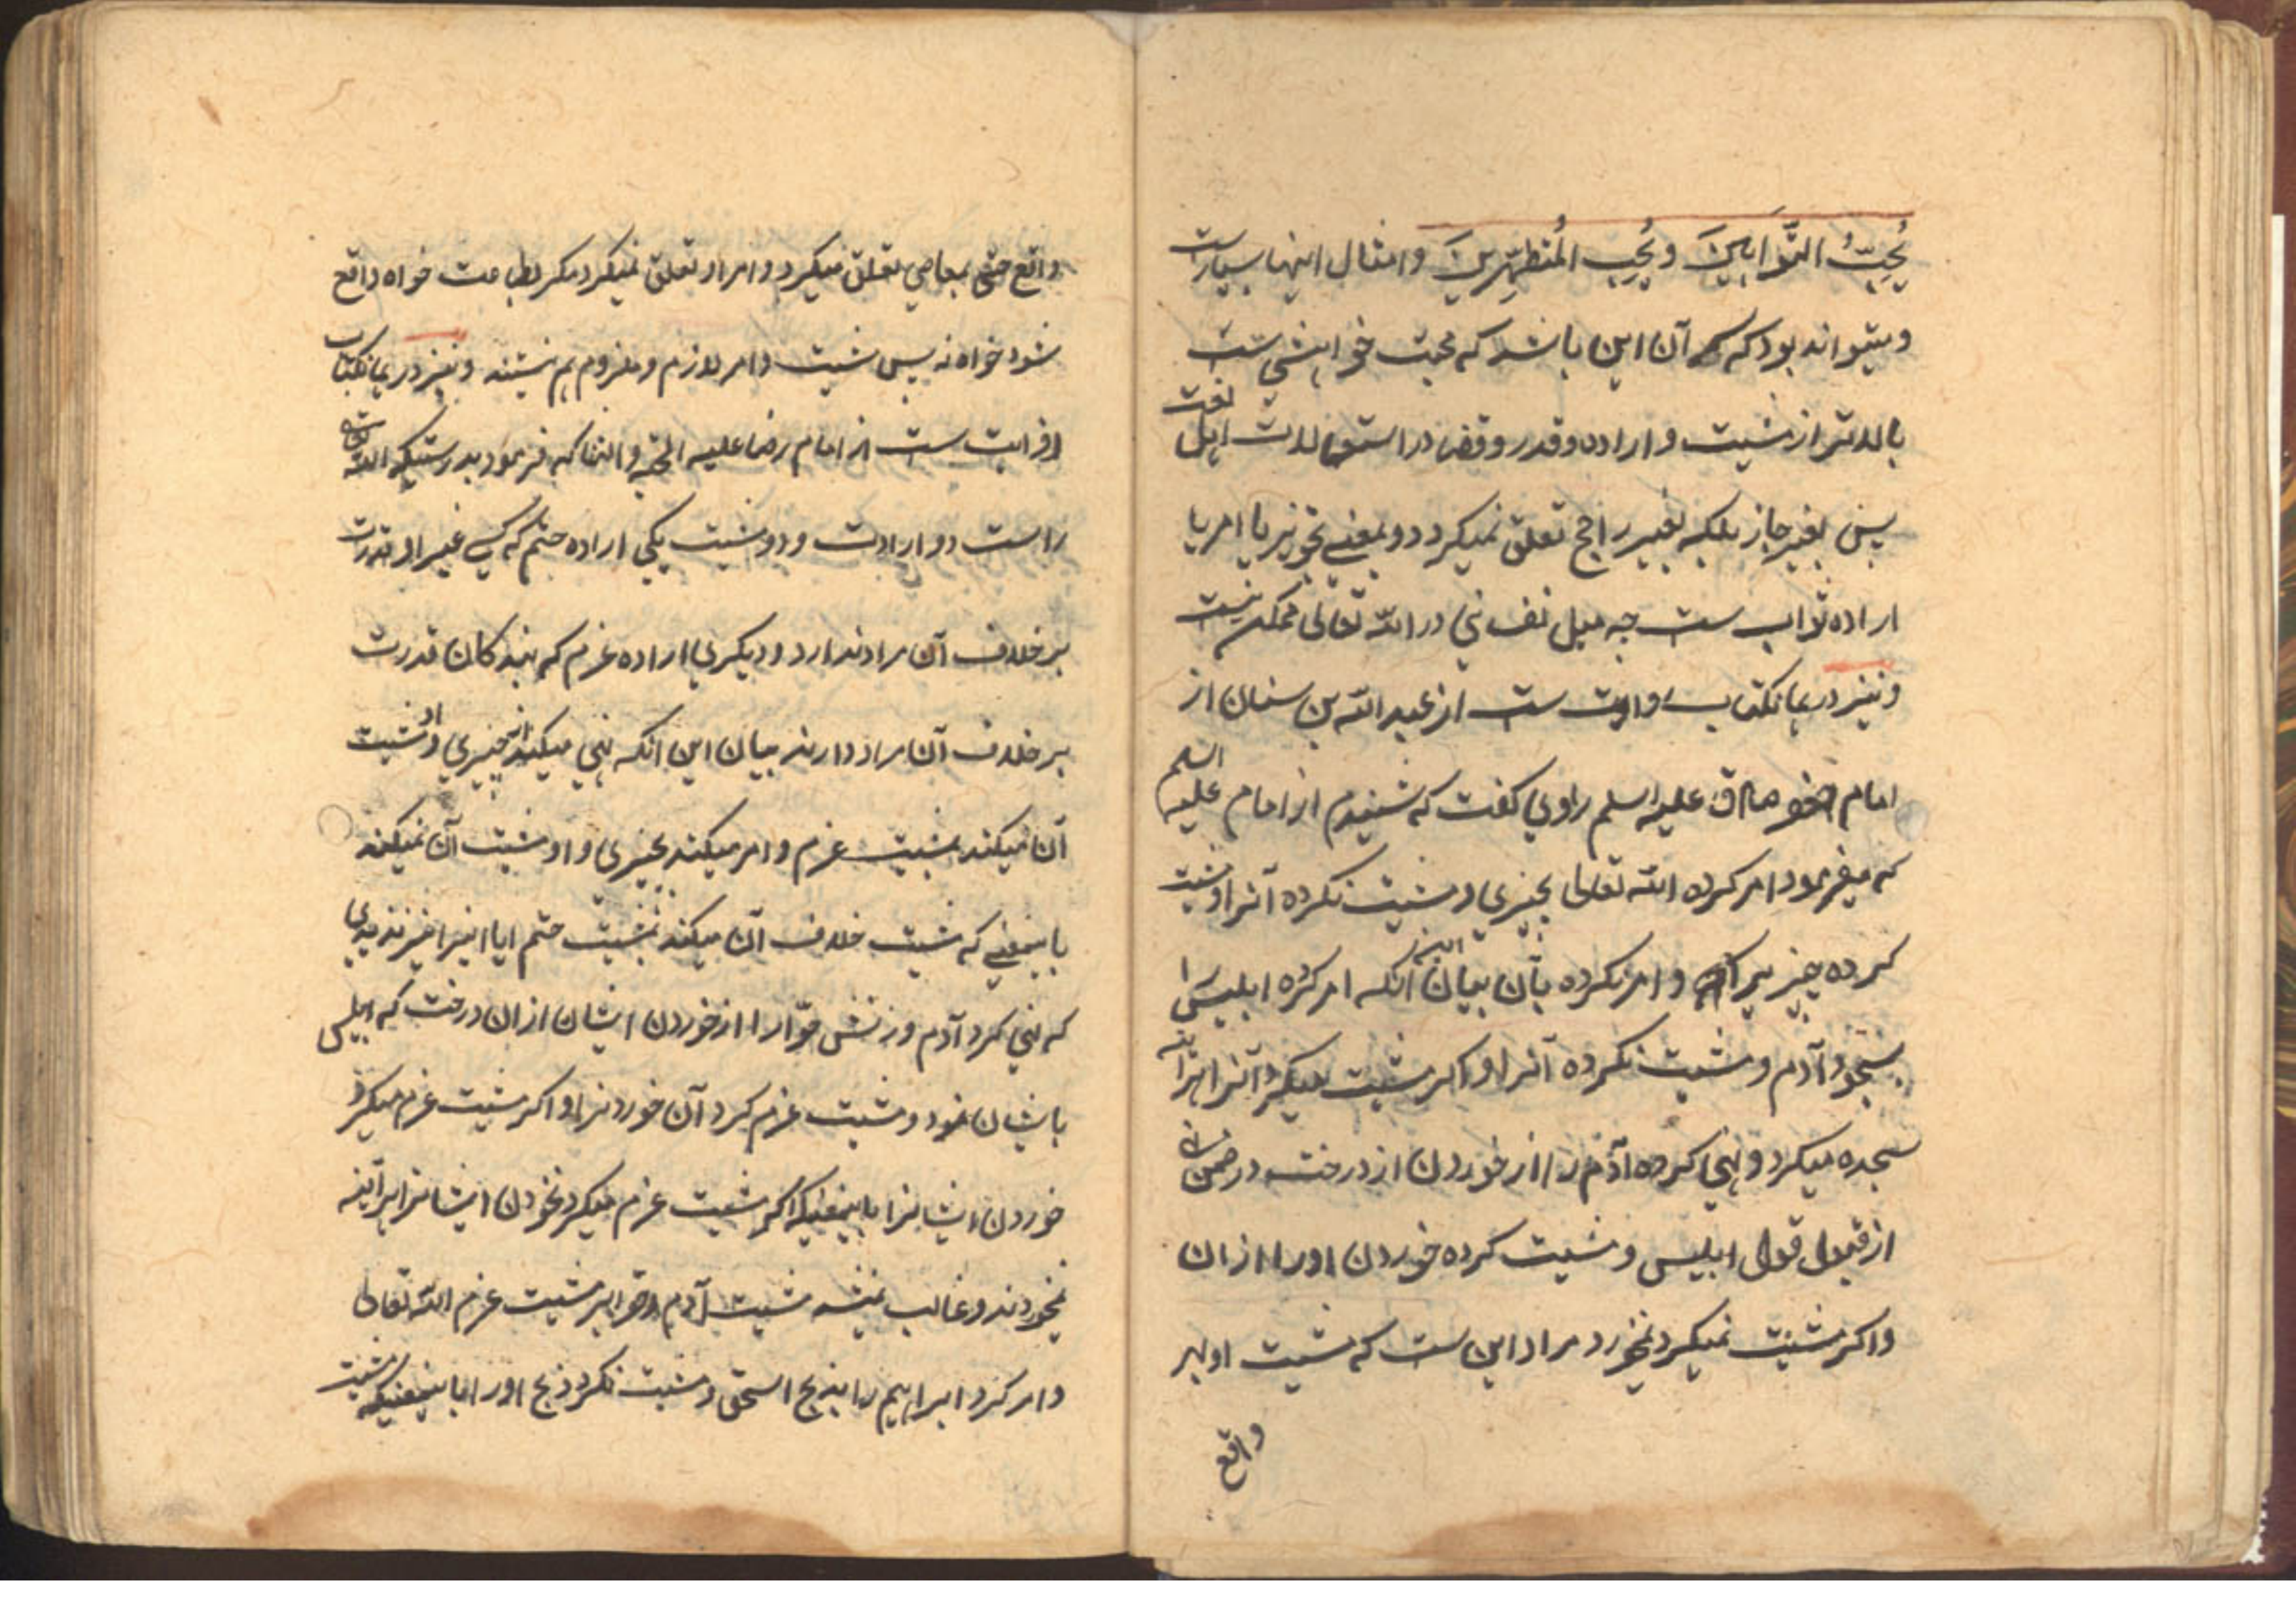 یُحِبُّ التَّوَّابِینَ وَیُحِبُّ الْمُتَطَهِّرِینَ وامثال اینها بسیارست
ومیتواند بود که آن این باشد که محبت خواهشی ست
بالاتر از مشیت و اراده و قدر و قضا در استعمالات اهل لغت
پس بغیر جایز بلکه بغیر راجح تعلق نمیکرد و بمعنی تجویز یا امر یا
اراده ثواب ست چه میل نفسانی در الله تعالی ممکن نیست
و نیز در همانکتاب روایت ست از عبدالله بن سنان از
امام جعفر صادق علیه السلم راوی گفت که شنیدم از امام علیه السلم
که میفرمود امر کرده الله تعالی بچیزی و مشیت نکرده آنرا و مشیت
کرده چیزیرا و امر نکرده بآن بیان این آنکه امر کرده ابلیس را
بسجود آدم و مشیت نکرده آنرا و اکر مشیت میکرد آنرا هراینه
سجده میکرد و نهی کرده آدم را از خوردن از درخت در ضمن نهی
از قبول قول ابلیس و مشیت کرده خوردن اورا ازان
واکر مشیت نمیکرد نمیخورد مراد این ست که مشیت او بهر
واقع
واقع حتی بمعاصی تعلق میکیرد و امر او تعلق نمیکیرد مکر بطاعت خواه واقع
شود خواه نه پس مشیت و امر لازم و ملزوم هم نیستند و نیز در همانکتاب
روایت ست از امام رضا علیه التحیه والثنا که فرمود بدرستیکه الله تعالی
راست دو ارادت و دو مشیت یکی اراده حتم که کسی غیر او قدرت
بر خلاف آن مراد ندارد و دیکری اراده عزم که بندکان قدرت
بر خلاف آن مراد دارند بیان این آنکه نهی میکند از چیزی و او مشیت
آن میکند بمشیت عزم و امر میکند بچیزی و او مشیت آن نمیکند
باینمعنی که مشیت خلاف آن میکند بمشیت حتم ایا اینرا نیز ندیدی
که نهی کرد آدم و زنش حوّا را از خوردن ایشان ازان درخت که ابلیس
بایشان نمود و مشیت عزم کرد آن خوردنرا و اکر مشیت عزم نمیکرد
خوردن ایشانرا باینمعنیکه اکر مشیت عزم میکرد نخوردن ایشانرا هراینه
نمیخوردند و غالب نمیشد مشیت آدم و حوا بر مشیت عزم الله تعالی
وامر کرد ابراهیم را بذبح اسحق و مشیت نکرد ذبح اورا باینمعنیکه مشیت